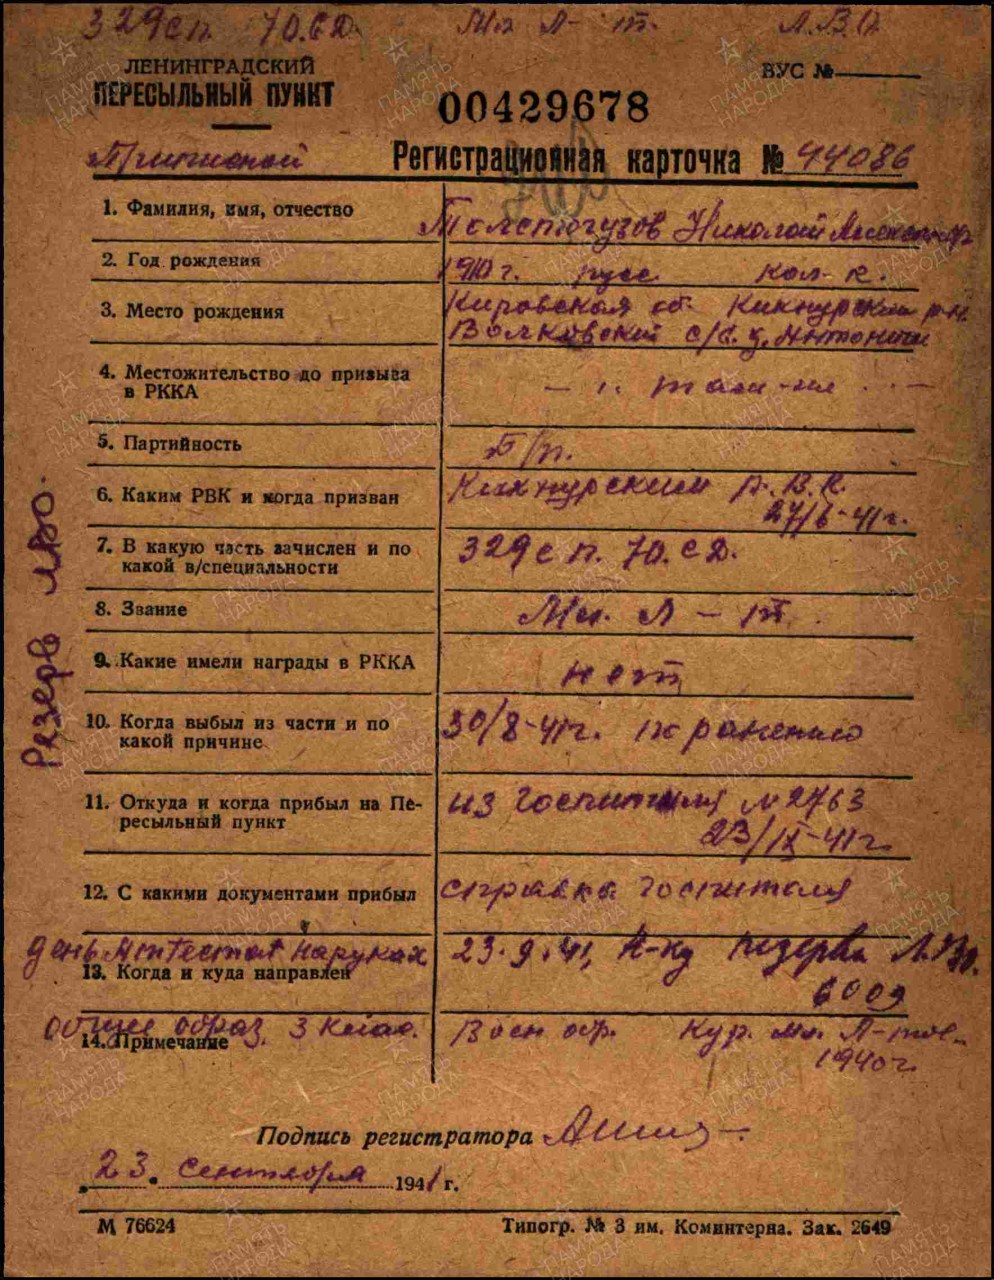 329 сп. 70. с д. Мл Л - т. Л.В.О
ЛЕНИНГРАДСКИЙ
ПЕРЕСЫЛЬНЫЙ ПУНКТ
ВУС №
00429678
Приписной
Регистрационная карточка № 44086
1. Фамилия, имя, отчество
Толстогузов Николай
2. Год рождения
1910 г. русс кол-к.
3. Место рождения
Кировская об. Кикнурский р-н
Волковский с/с. д. Антонычи
4. Местожительство до призыва
в РККА
- там-же -
5. Партийность
Б/п.
6. Каким РВК и когда призван
Кикнурским р.В.К.
27/6-41 г.
7. В какую часть зачислен и по
какой в/специальности
329 с п. 70. с д.
8. Звание
Мл. Л - т.
9. Какие имели награды в РККА
нет
10. Когда выбыл из части и по
какой причине
30/8-41 г. по ранению
11. Откуда и когда прибыл на Пе-
ресыльный пункт
из госпиталя № 2763
23/IX-41 г.
12. С какими документами прибыл
справка госпиталя
день Аттестат на руках
13. Когда и куда направлен
23. 9. 41, Н-ку резерва Л.В.О.
6009
общее образ. 3 клас.
14. Примечание
Воен обр. Кур. мл. Л-тов.
1940 г.
Резерв ЛВО.
Подпись регистратора
23. сентября 1941 г.
М 76624
Типогр. № 3 им. Коминтерна. Зак. 2649
ПАМЯТЬ НАРОДА